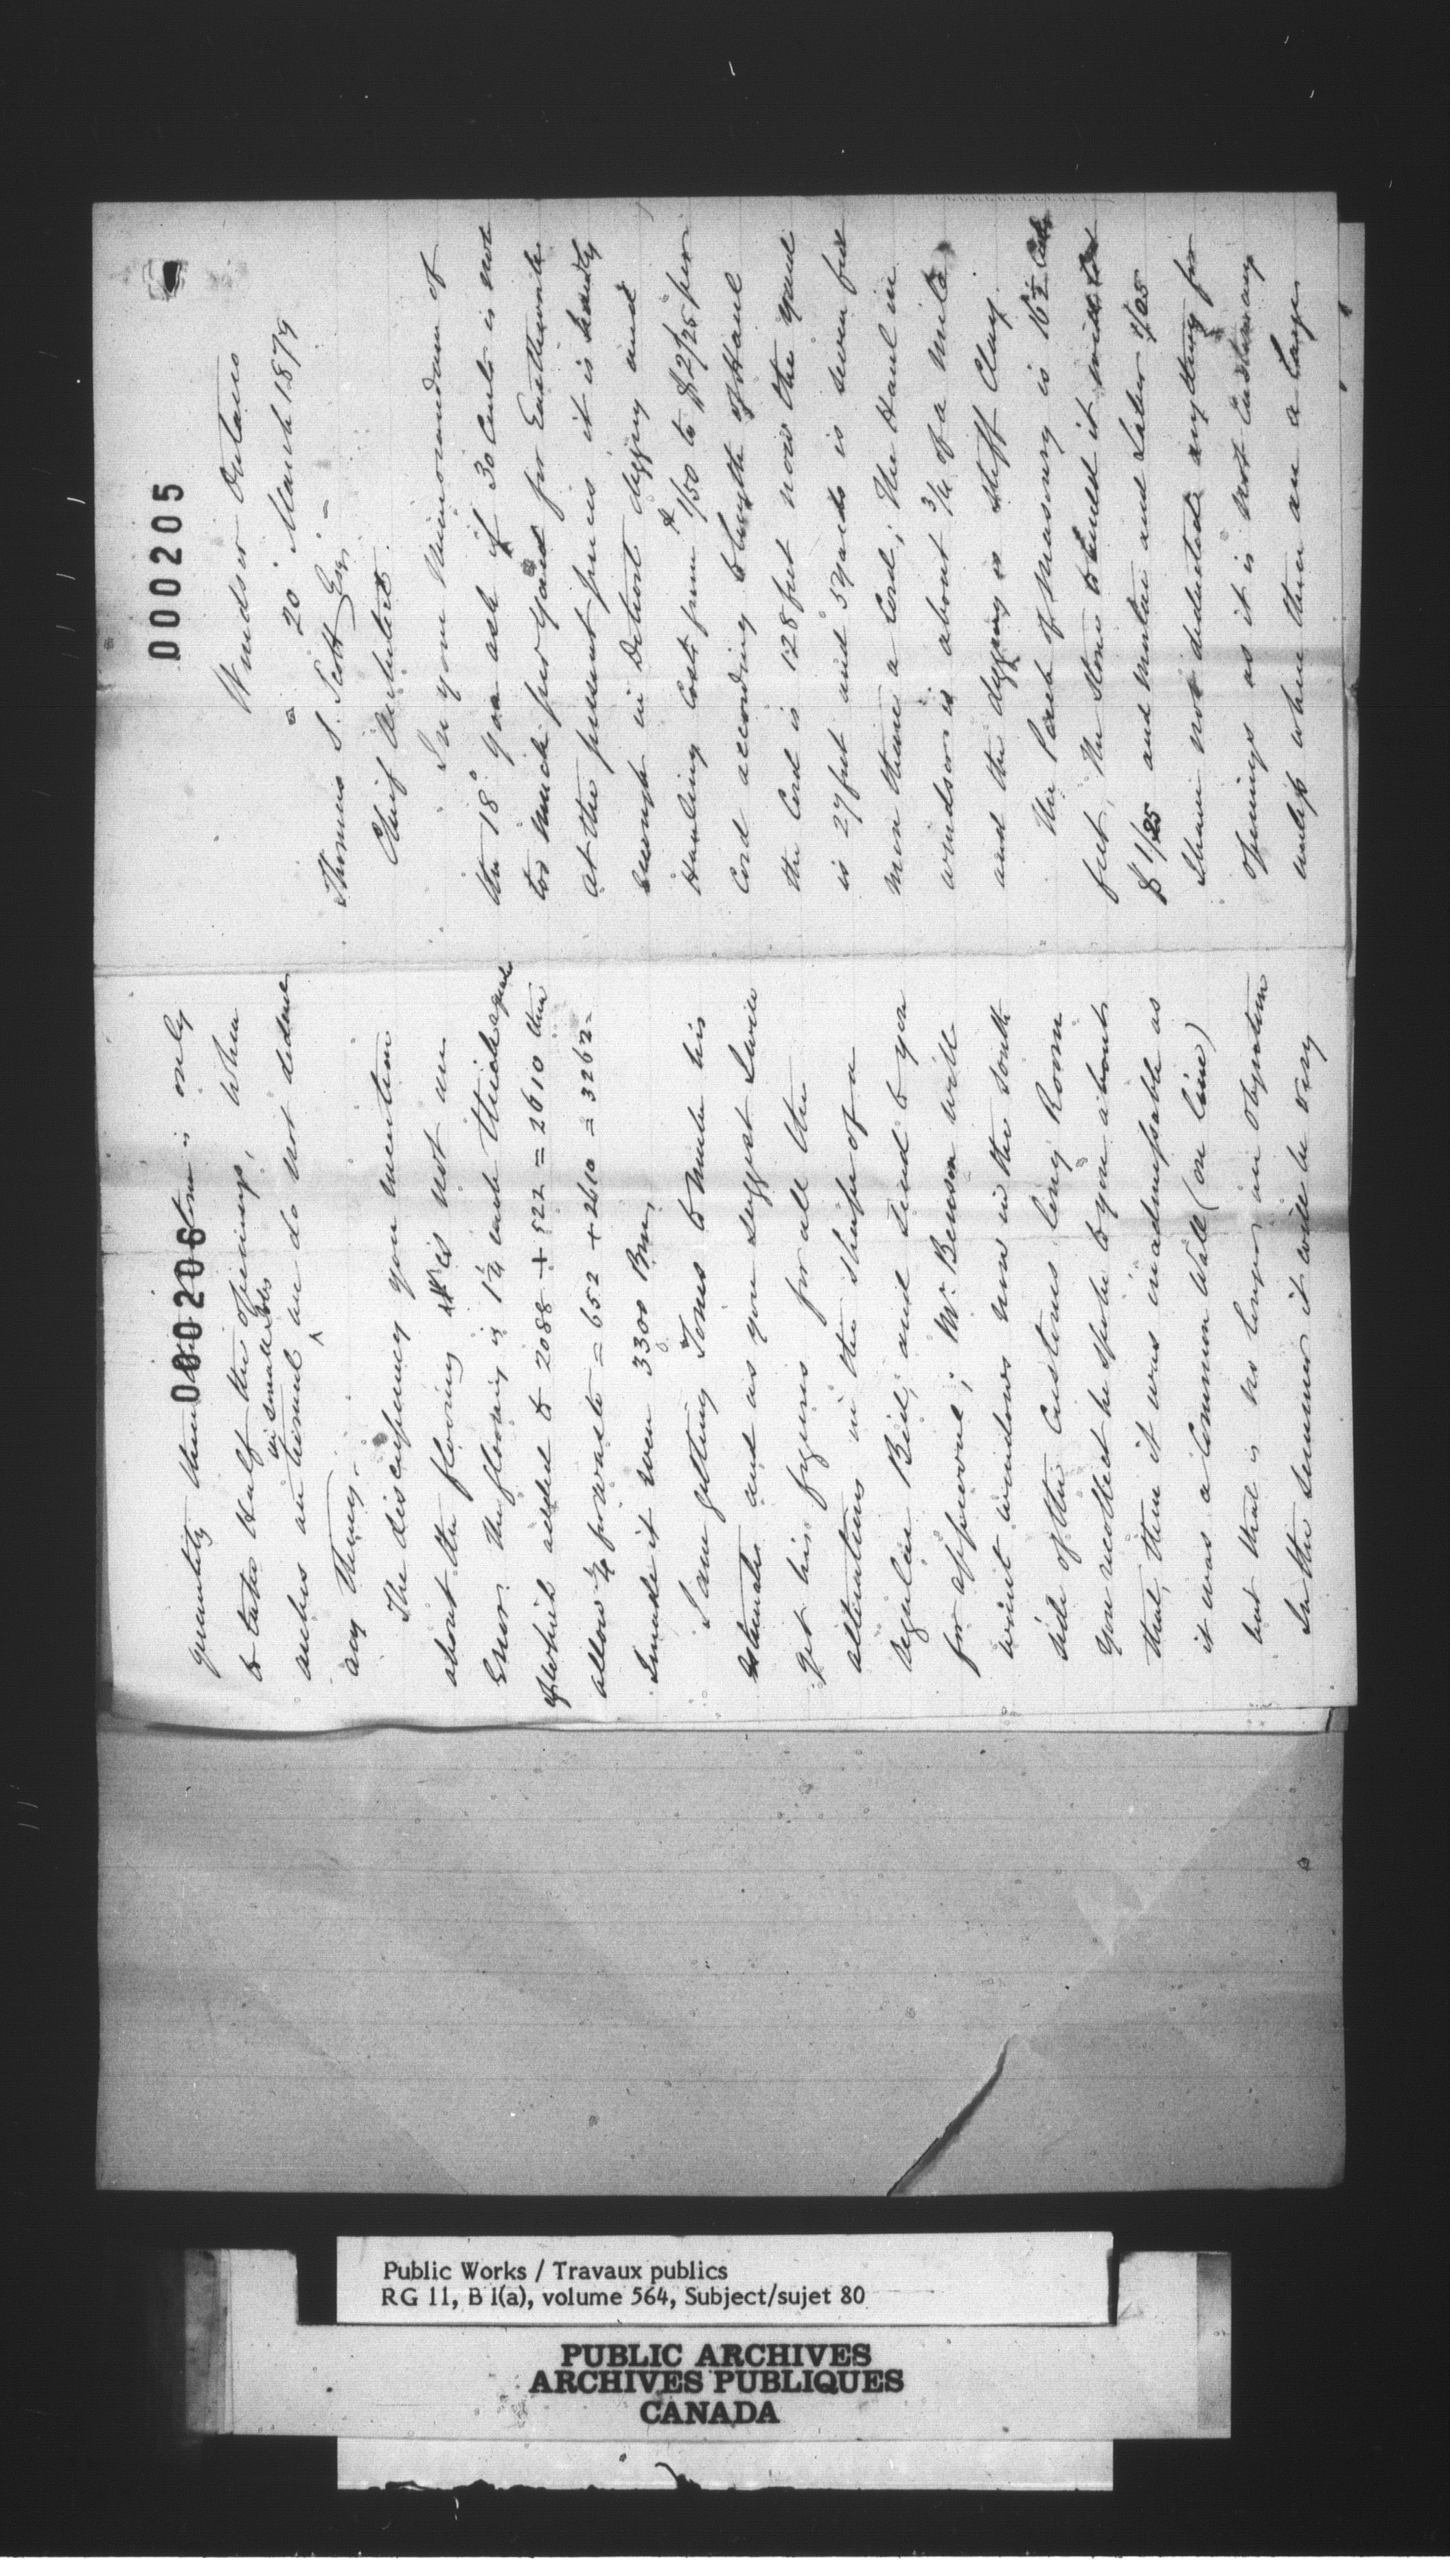 000205
Windsor Ontario
20 March 1879
Thomas S. Scott Esq.
Chief Architect
In your Memorandum of
the 18° you ask if 30 Cents is not
too much per yard for Earthwork
at the present prices it is hardly
enough in Detroit digging and
Hauling Costs from $1/50 to $2/25 per
Cord according to length of Haul
the Cord is 128 feet now the yard
is 27 feet and 5 yards is seven feet
more than a Cord; The Haul in
windsor is about 3/4 of a mile
and the digging is stiff Clay.
The Perch of Masonry is 16 1/2 Cubic
feet, The Stone to build it will Cost
$1/25 and mortar and Labor $1/25
I have not deducted any thing for
openings as it is not Customary
unless when there are a large
000206
quantity then is only
to take Half the openings, When
in small Jobs
arches are turned we do not deduct
any thing.
The discrepancy you mention
about the flooring is not an
Error. The flooring is 1 1/4 inch thick
of which added to 2088 + 522 = 2610 then
allow 1/4 for waste = 652 + 2610 = 3262-
I made it even 3300 Bm,
I am getting Jones to make his
Estimates and as you suggest I will
get his figures for all the
alterations in the shape of a
regular Bid, and send to you
for approval; Mr Benson will
want windows now in the South
side of the Customs long Room
you recollect he spoke to you about
that, then it was inadmissable as
it was a Common Wall (on line)
but that is no longer an objection
In the Summer it will be very
Public Works / Travaux publics
RG 11, B 1(a), volume 564, Subject/sujet 80
PUBLIC ARCHIVES
ARCHIVES PUBLIQUES
CANADA